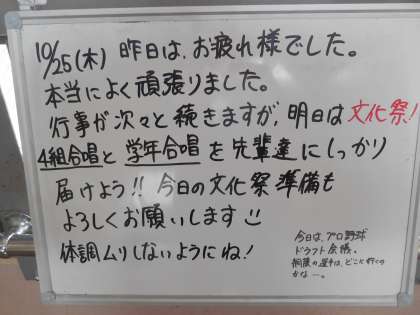 10/25(木) 昨日は、お疲れ様でした。
本当によく頑張りました。
行事が次々と続きますが、明日は文化祭!
4組合唱と学年合唱を先輩達にしっかり
届けよう!! 今日の文化祭準備も
よろしくお願いします
体調ムリしないようにね!
今日は、プロ野球
ドラフト会議。
桐蔭の選手は、どこに行くの
かな—。